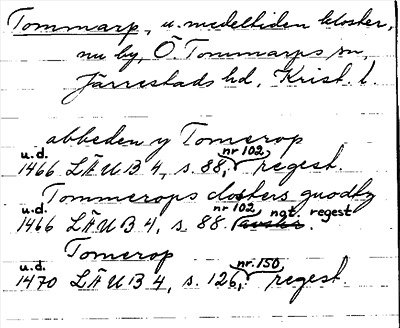 Tommarp, u. medeltiden kloster,
nu by, Ö. Tommarps sn,
Järrestads hd, Krist. l.
abbeden y Tomerop
u.d. nr 102
1466 LÄUB 4, s. 88, regest.
Tommerops closters guodtz
u.d. nr 102 ngt. regest
1466 LÄUB 4, s. 88.
Tomerop
u.d. nr. 150
1470 LÄUB 4, s. 126, regest.